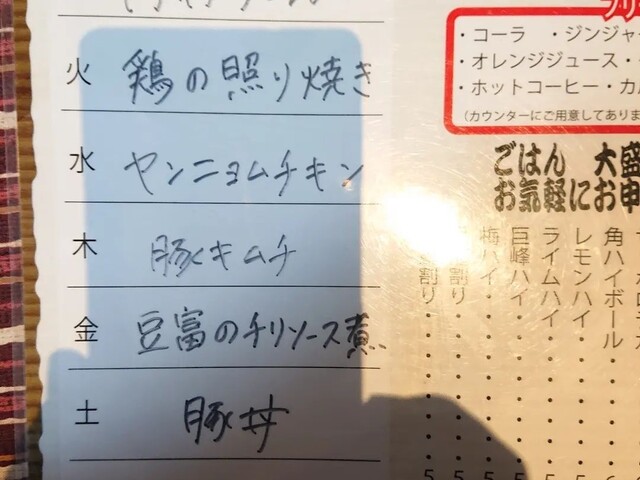 火 鶏の照り焼き
水 ヤンニョムチキン
木 豚キムチ
金 豆富のチリソース煮
土 豚丼
フリー
・コーラ ・ジンジャー
・オレンジジュース・
・ホットコーヒー・カル
(カウンターにご用意してありま
ごはん 大盛
お気軽にお申
角ハイボール
レモンハイ
ライムハイ
巨峰ハイ
梅ハイ
割り
割り